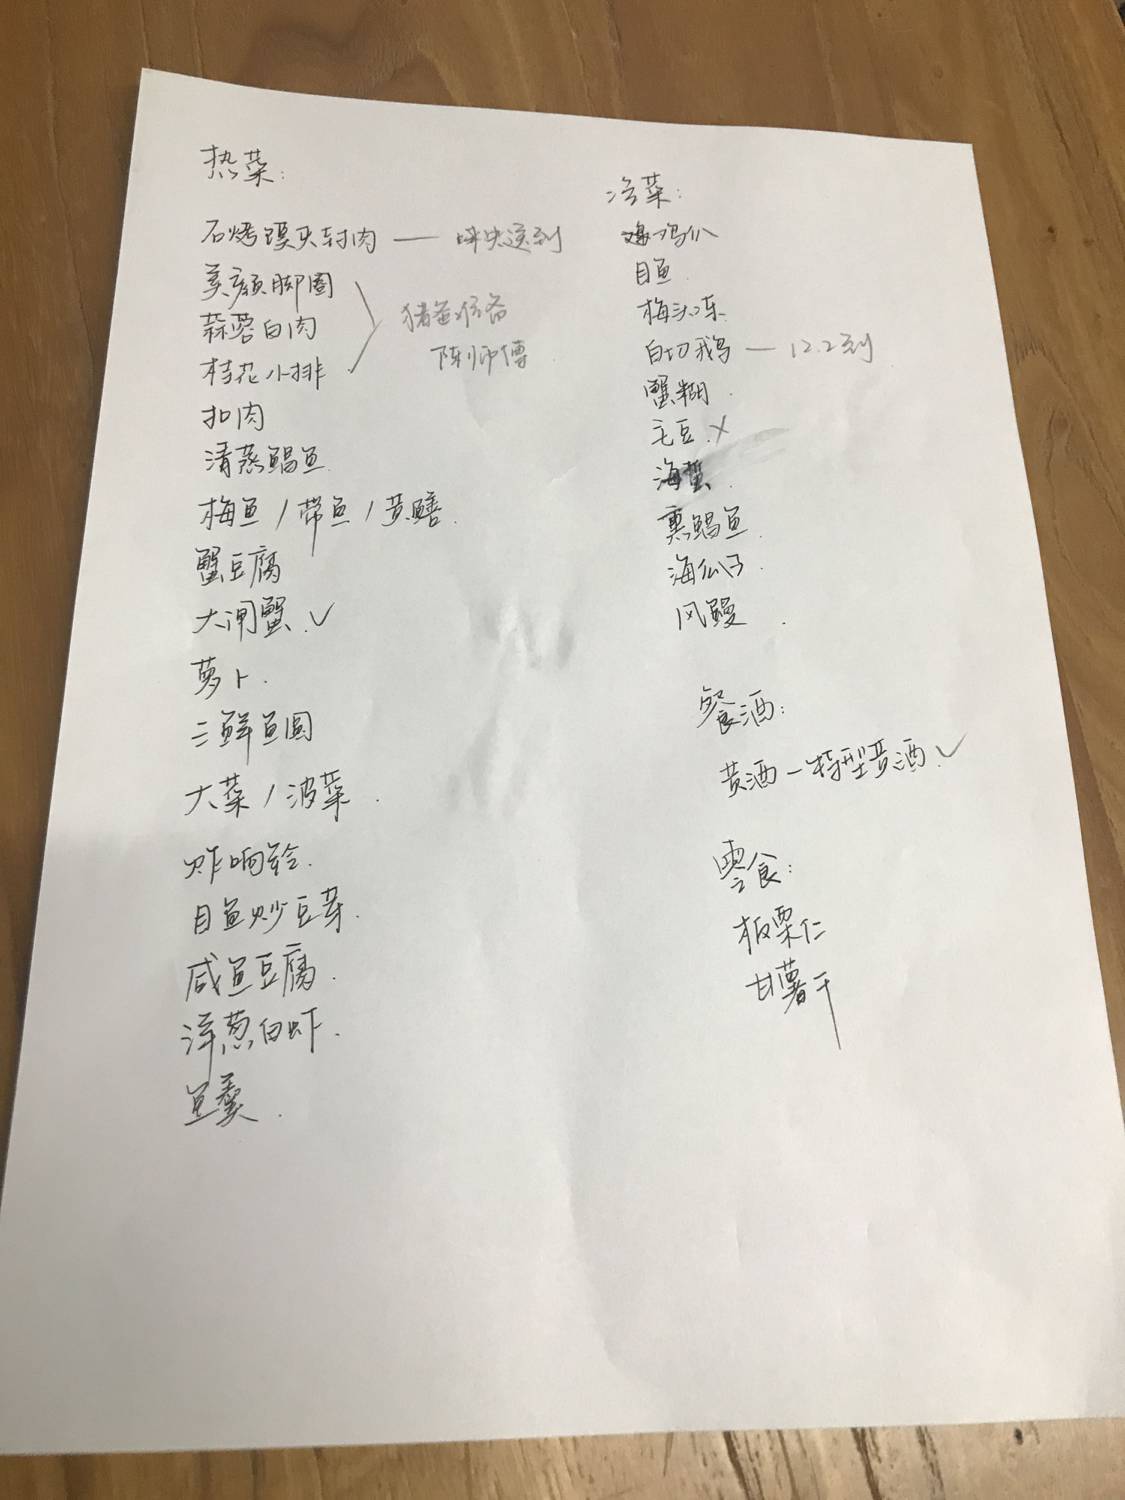 热菜：
石烤馍夹封肉 —
美颜脚圈
蒜蓉白肉
桂花小排
猪爸准备
陈师傅
扣肉
清蒸鲳鱼
梅鱼/带鱼/黄鳝.
蟹豆腐
大闸蟹.✓
萝卜.
三鲜鱼圆
大菜/波菜.
炸响铃.
目鱼炒豆芽.
咸鱼豆腐.
洋葱白虾.
鱼羹.
冷菜：
目鱼
梅头冻
白切鹅 — 12.2到
蟹糊.
毛豆.×
海蜇.
熏鲳鱼.
海瓜子.
风鳗.
餐酒：
黄酒—特型黄酒.✓
零食：
板栗仁
甘薯干